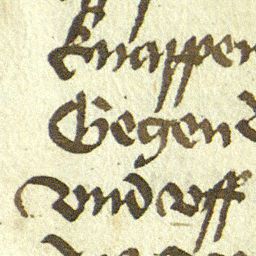 knappen
Gegend
vnd vff